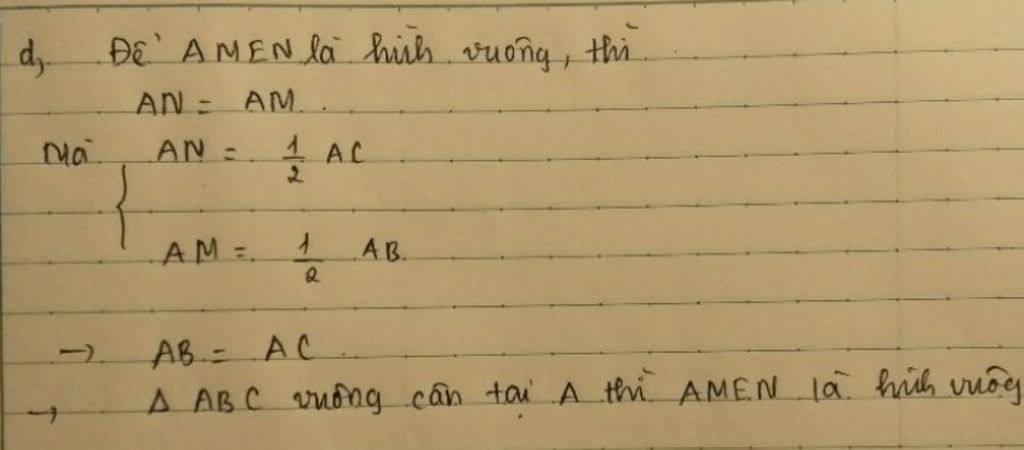 d, Để AMEN là hình vuông, thì
AN = AM.
Mà AN = 1/2 AC
AM = 1/2 AB.
→ AB = AC.
→ Δ ABC vuông cân tại A thì AMEN là hình vuông